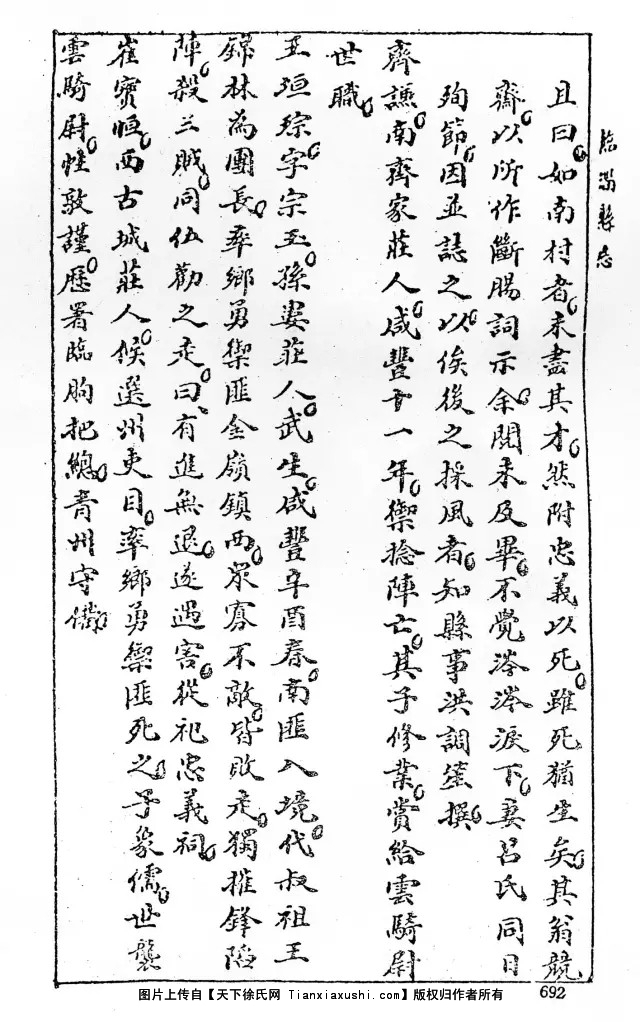 臨淄縣志
且曰如南村者未盡其才然附忠義以死雖死猶生矣其翁競
齋以所作斷腸詞示余閱未及畢不覺涔涔淚下妻呂氏同日
殉節因並誌之以俟後之採風者知縣事洪調笙撰
齊謙南齊家莊人咸豐十一年禦捻陣亡其子修業賞給雲騎尉
世職
王垣琮字宗玉孫婁莊人武生咸豐辛酉春南匪入境代叔祖王
錦林為團長率鄉勇禦匪金嶺鎮西眾寡不敵皆敗走獨摧鋒陷
陣殺三賊同伍勸之走曰有進無退遂遇害從祀忠義祠
崔寶恒西古城莊人候選州吏目率鄉勇禦匪死之予象儒世襲
雲騎尉性敦謹歷署臨朐把總青州守備
图片上传自【天下徐氏网 Tianxiaxushi.com】版权归作者所有
692